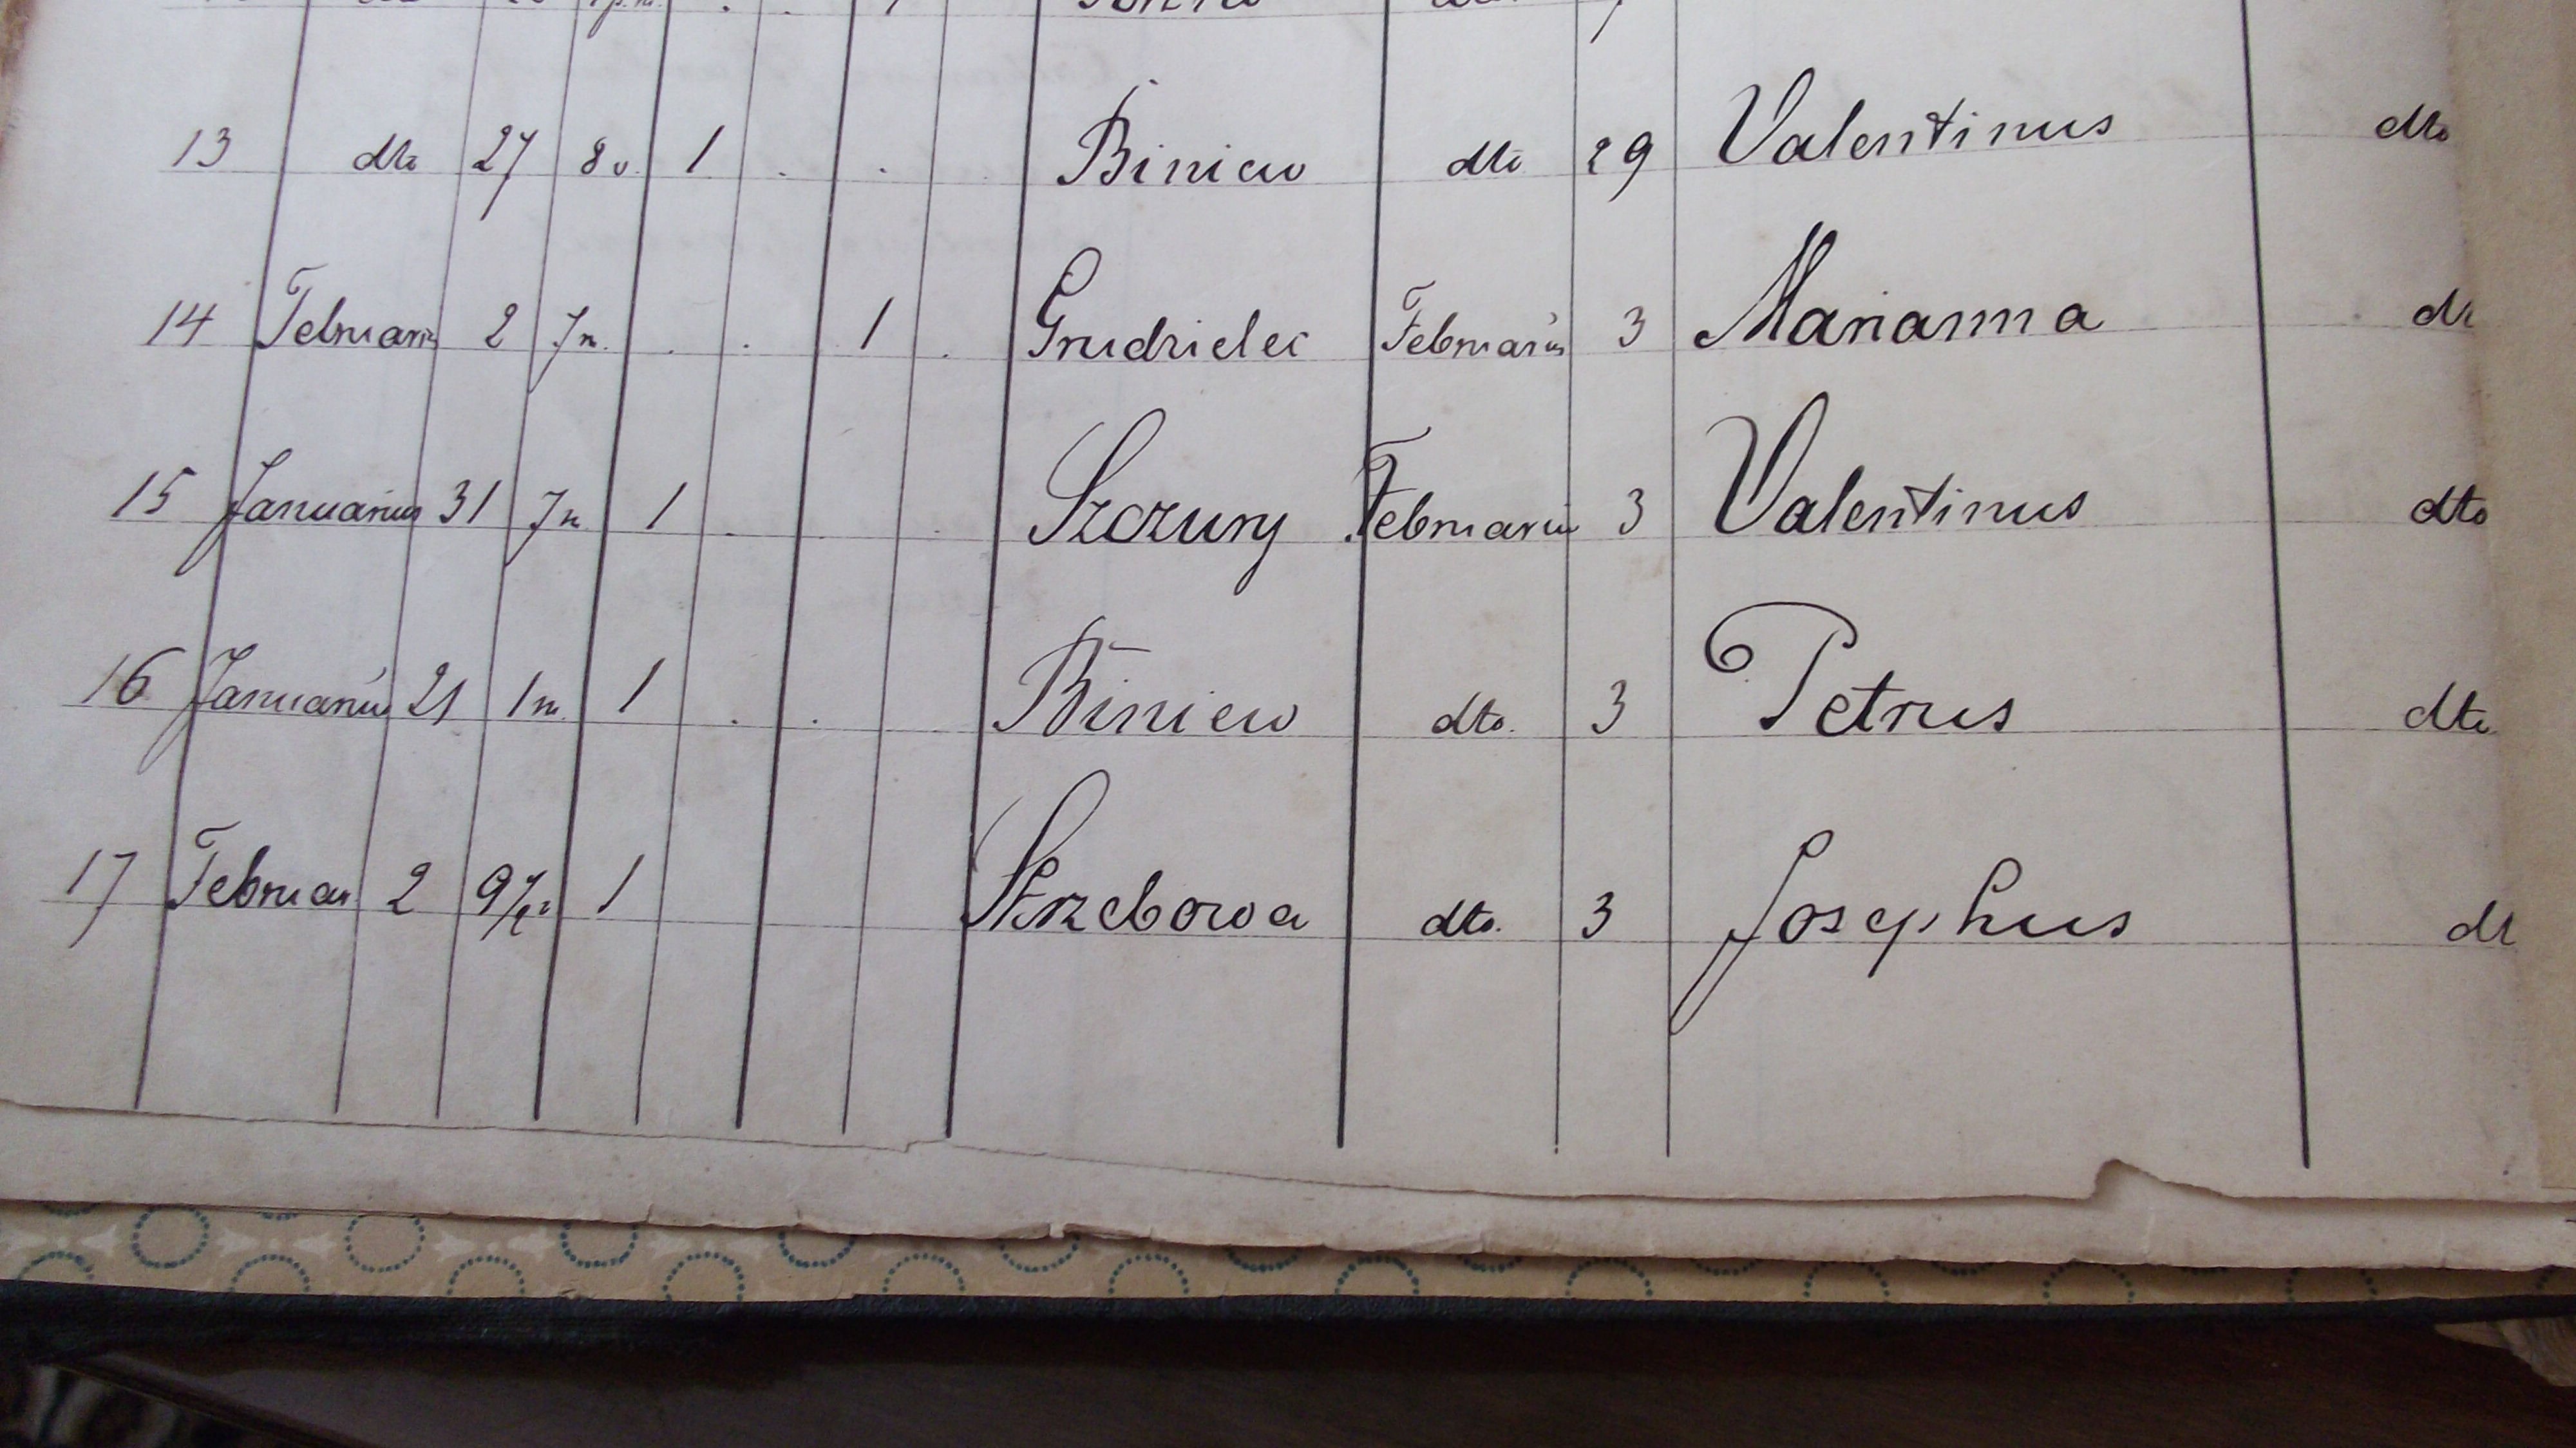 13 dto 27 8 v. 1 . . Biniew dto 29 Valentinus dto
14 Februariu 2 7 n. . . 1 . Grudzielec Februarius 3 Marianna dt
15 Januarius 31 7 n 1 . . . Szczury Februariu 3 Valentinus dto
16 Januariu 21 1 n. 1 . . Biniew dto. 3 Petrus dto
17 Februar 2 1 Strzebowa dto. 3 Josephus dt